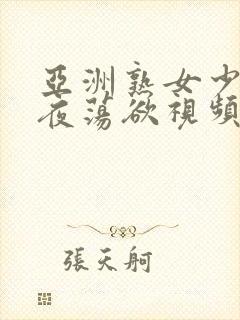 亞洲熟女少
夜蕩欲視頻
張天舸